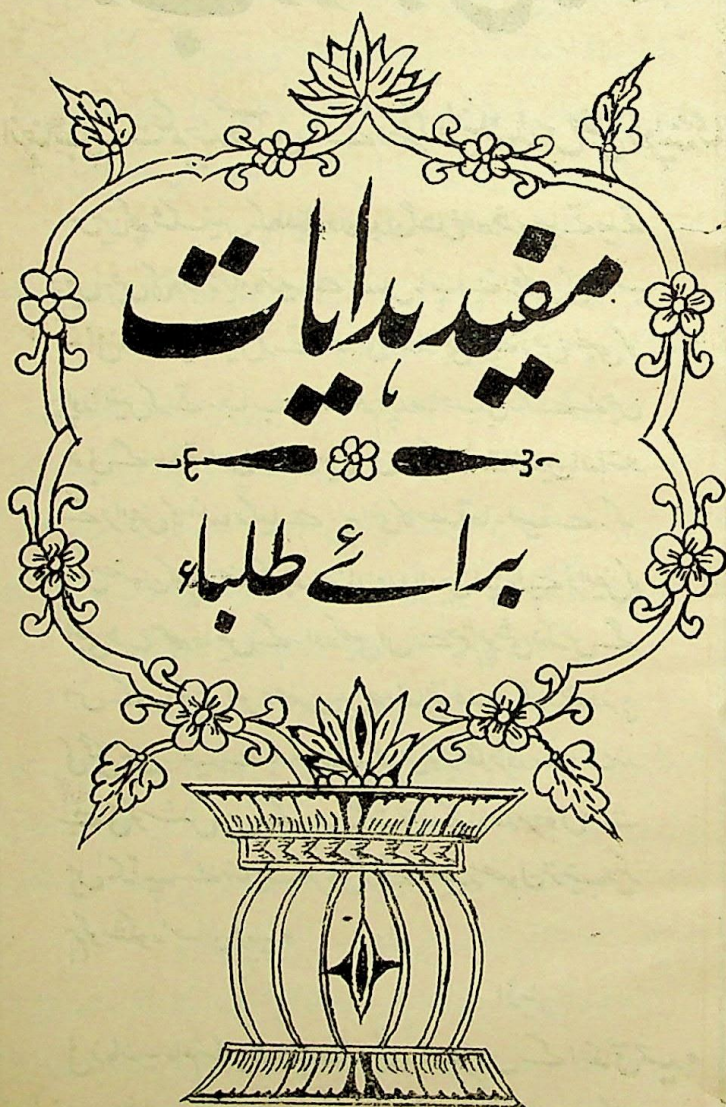 مفید ہدایات
برائے طلباء